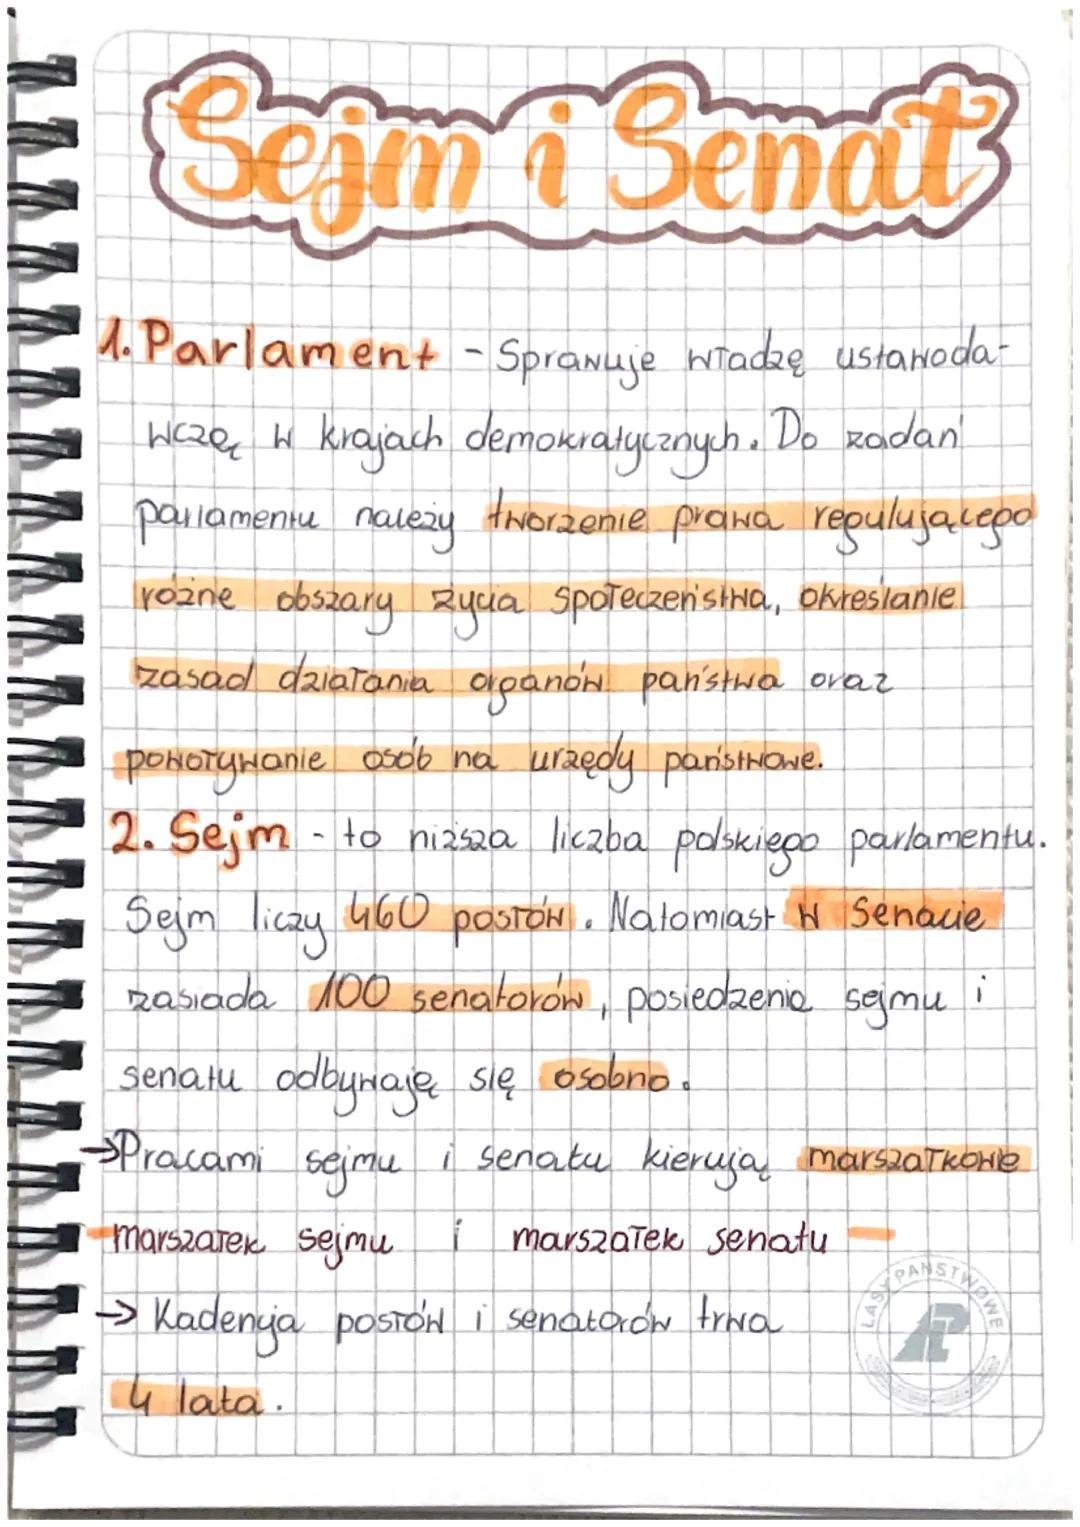 Sejm i Senat
1. Parlament - Sprawuje władzę ustawoda-
wczę w krajach demokratycznych. Do zadań
parlamentu należy tworzenie prawa regulującego
różne obszary życia społeczeństwa, określanie
zasad działania organów państwa oraz
powoływanie osób na urzędy państwowe.
2. Sejm - to niższa liczba polskiego parlamentu.
Sejm liczy 460 posłów. Natomiast w Senacie
zasiada 100 senatorów, posiedzenia sejmu i
senatu odbywaję się osobno.
→Pracami sejmu i senatu kierują marszałkowie
- marszałek sejmu i marszałek senatu -
→ Kadencja posłów i senatorów trwa
4 lata.
LASY PAŃSTWOWE